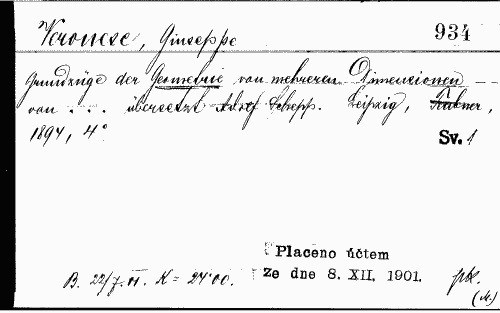 Veronese, Giuseppe 934
Grundzüge der Geometrie von mehreren Dimensionen
von ... übersetzt Adolf Schepp. Leipzig, Teubner,
1894, 4° Sv. 1
Placeno účtem
B. 22/7. K = 24'00. ze dne 8. XII. 1901.
(M)